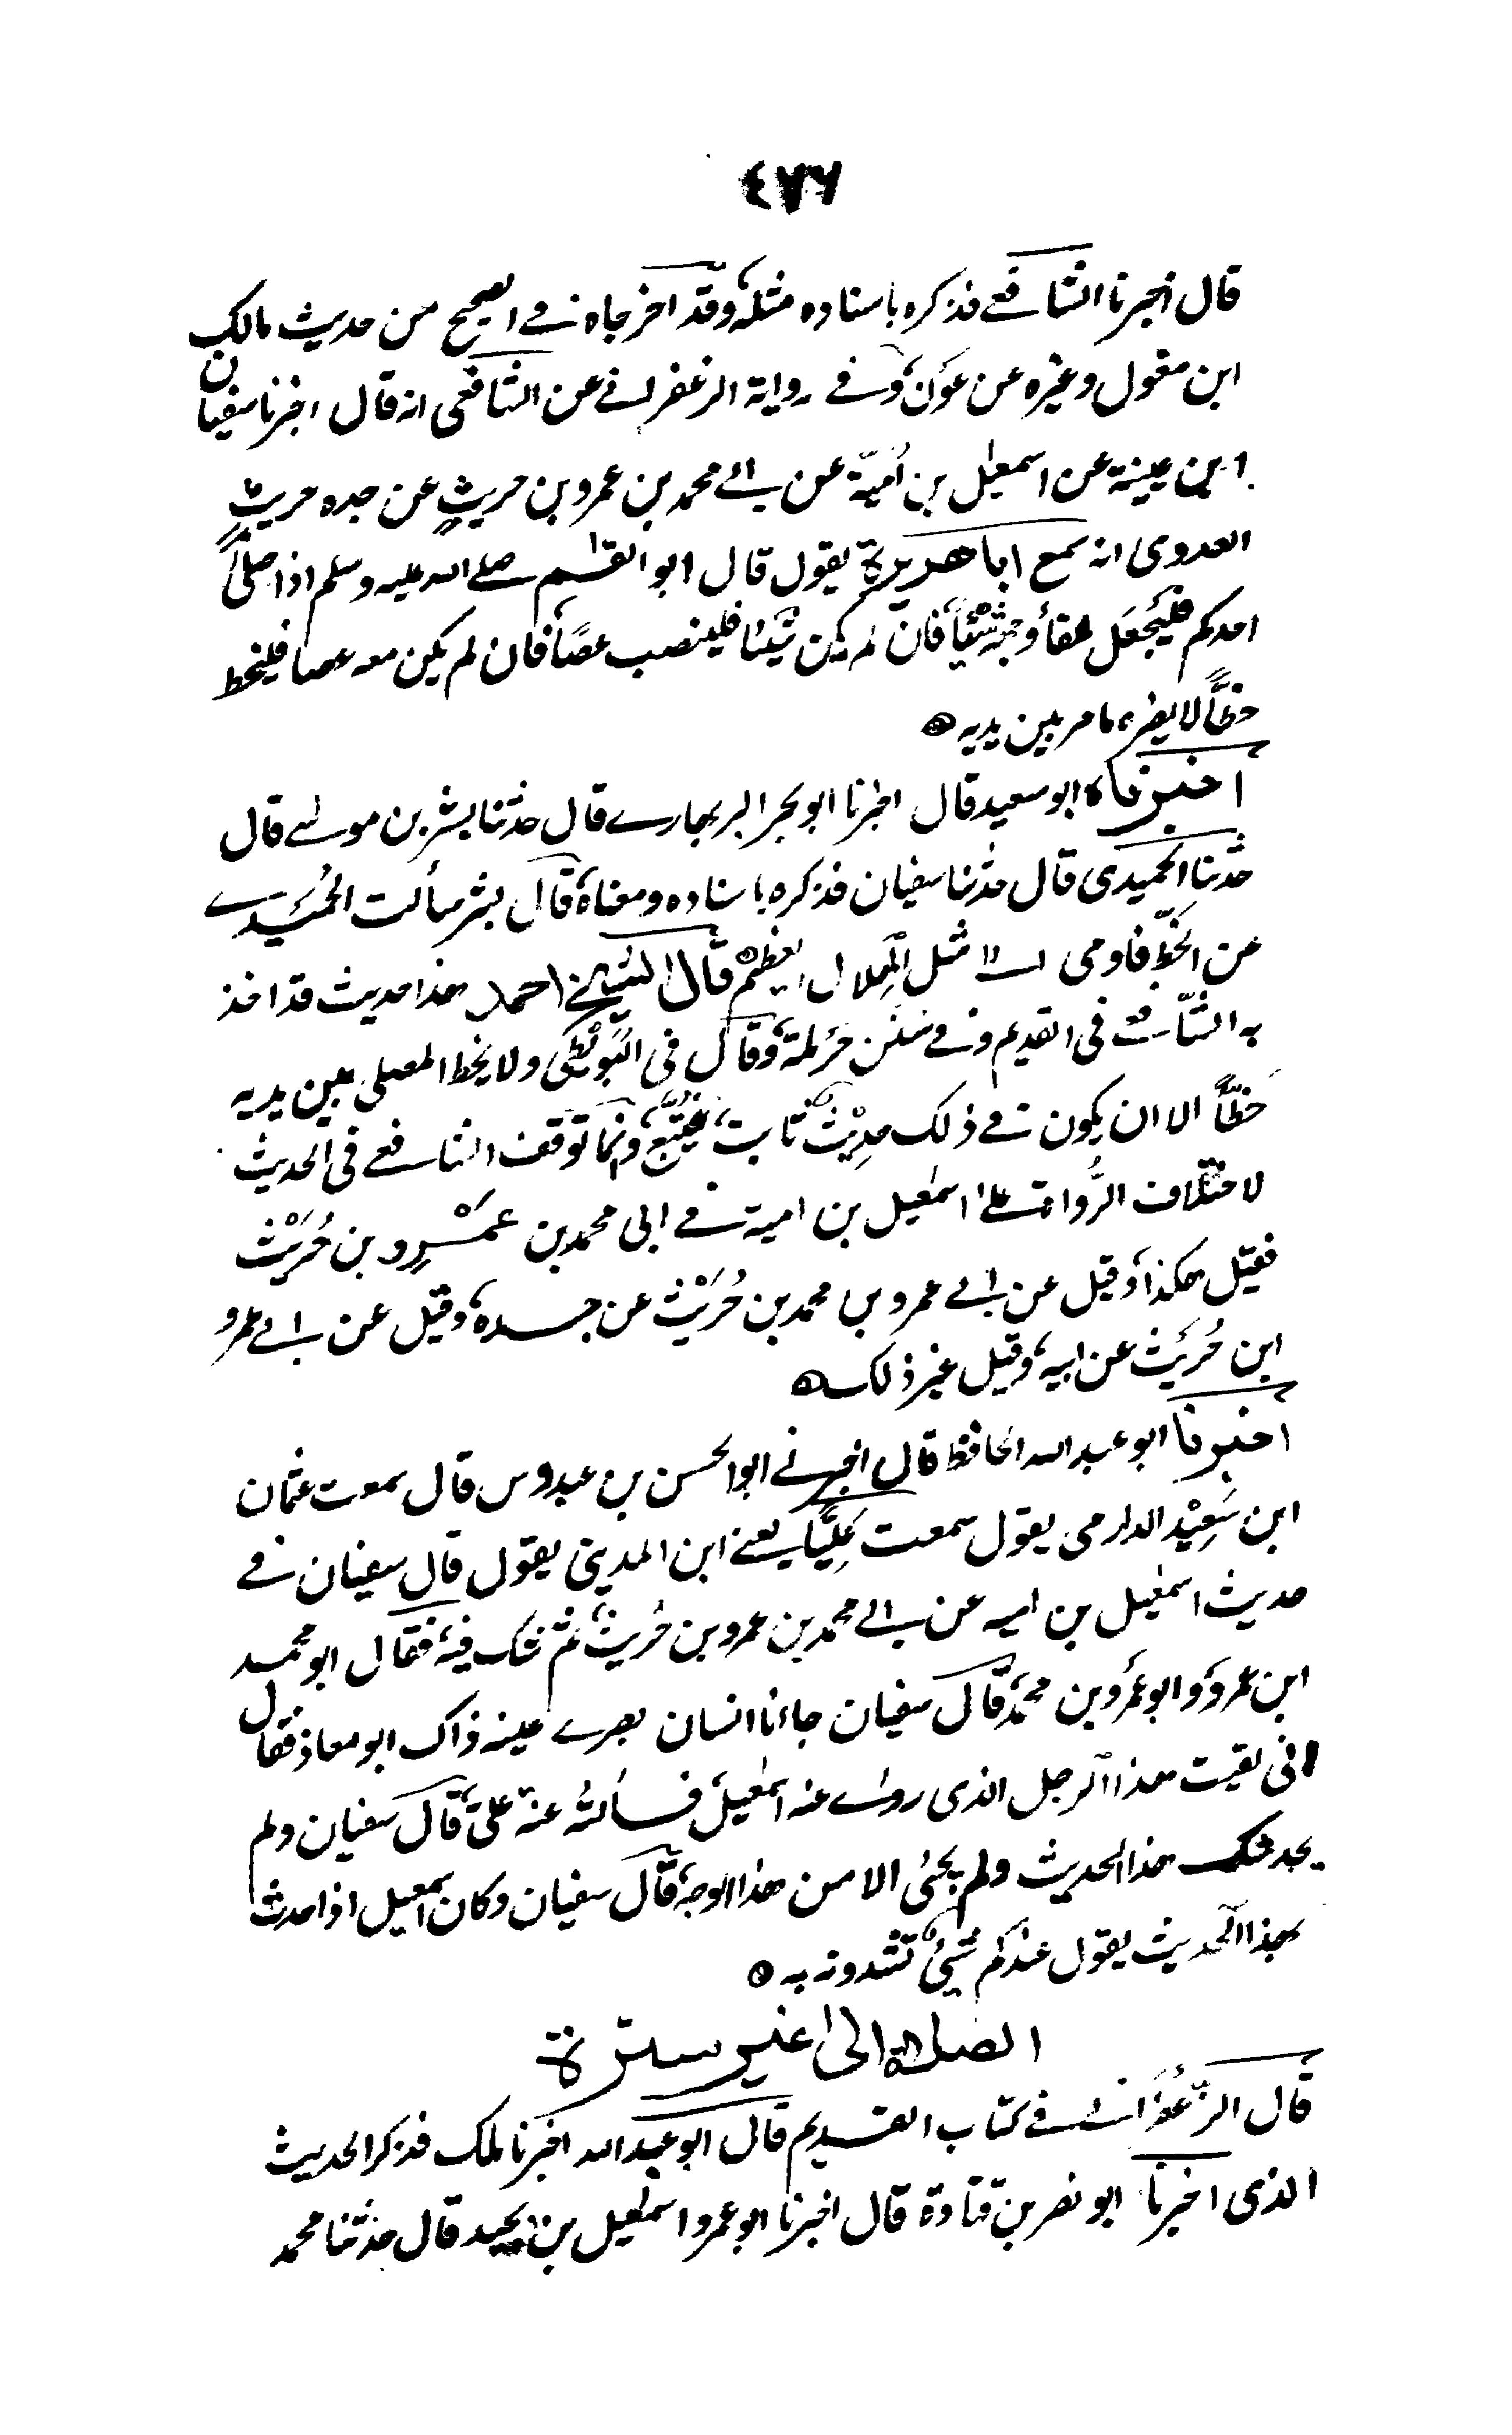 ٤٧٦
قال اخبرنا الشافعي فذكره باسناده مثله وقد اخرجاه في الصحيح من حديث مالك
ابن مغول وغيره عن عون، وفي رواية الزعفراني عن الشافعي انه قال اخبرنا سفيان
ابن عيينة عن اسمعيل بن اُميّة عن ابي محمد بن عمرو بن حريثٍ عن جده حريثٍ
العدوى انه سمع اباهريرة يقول قال ابو القسم صلى الله عليه وسلم اذا صلّى
احدكم فليجعل تلقاء وجهه شيئاً، فان لم يكن شيئا فلينصب عصًا، فان لم يكن معه عصا فليخط
خطًّا لا يضره ما مر بين يديه
اخبرناه ابو سعيد قال اخبرنا ابو بحر البربهاري قال حدثنا بشر بن موسى قال
حدثنا الحميدى قال حدثنا سفيان فذكره باسناده ومعناه، قال بشر سألت الحُمَيدي
عن الخطّ فاومى الىّ مثل الهِلال العظيم قال الشيخ احمد هذا حديث قد اخذ
به الشافعي فى القديم وفي سنن حرملة، وقال فى البويطى ولا يخط المصلى بين يديه
خطّاً الا ان يكون في ذلك حديث ثابت، فيُتّبع، وانما توقف الشافعي فى الحديث
لاختلاف الرُّواة على اسمعيل بن امية في ابى محمد بن عمرو بن حُريْث
فقيل هكذا، وقيل عن ابي عمرو بن محمد بن حُريْث عن جده، وقيل عن ابي عمرو
ابن حُريث عن ابيه، وقيل غير ذلك
اخبرنا ابو عبد الله الحافظ قال اخبرني ابو الحسن بن عبدوس قال سمعت عثمان
ابن سَعِيْد الدارمى يقول سمعت عَلِيًّا يعني ابن المدينى يقول قال سفيان في
حديث اسمعيل بن اميه عن ابي محمد بن عمرو بن حُريث، ثم شك فيه، فقال ابو محمد
ابن عمرو، وابو عمرو بن محمد، قال سفيان جاءنا انسان بصري عينه ذاك ابو معاذ فقال
انى لقيت هذا الرجل الذى روى عنه اسمعيل فسألته عنه علىّ، قال سفيان ولم
يجد هذا الحديث ولم يجئ الا من هذا الوجه، قال سفيان وكان اسمعيل اذا حدث
بهذا الحديث يقول عندكم شيئ تشدونه به
الصلاة الى غير سترة
قال الزعفراني في كتاب القديم قال ابو عبد الله اخبرنا ملك فذكر الحديث
الذى اخبرنا ابو نصر بن قتادة قال اخبرنا ابو عمرو اسمعيل بن نجيد قال حدثنا محمد